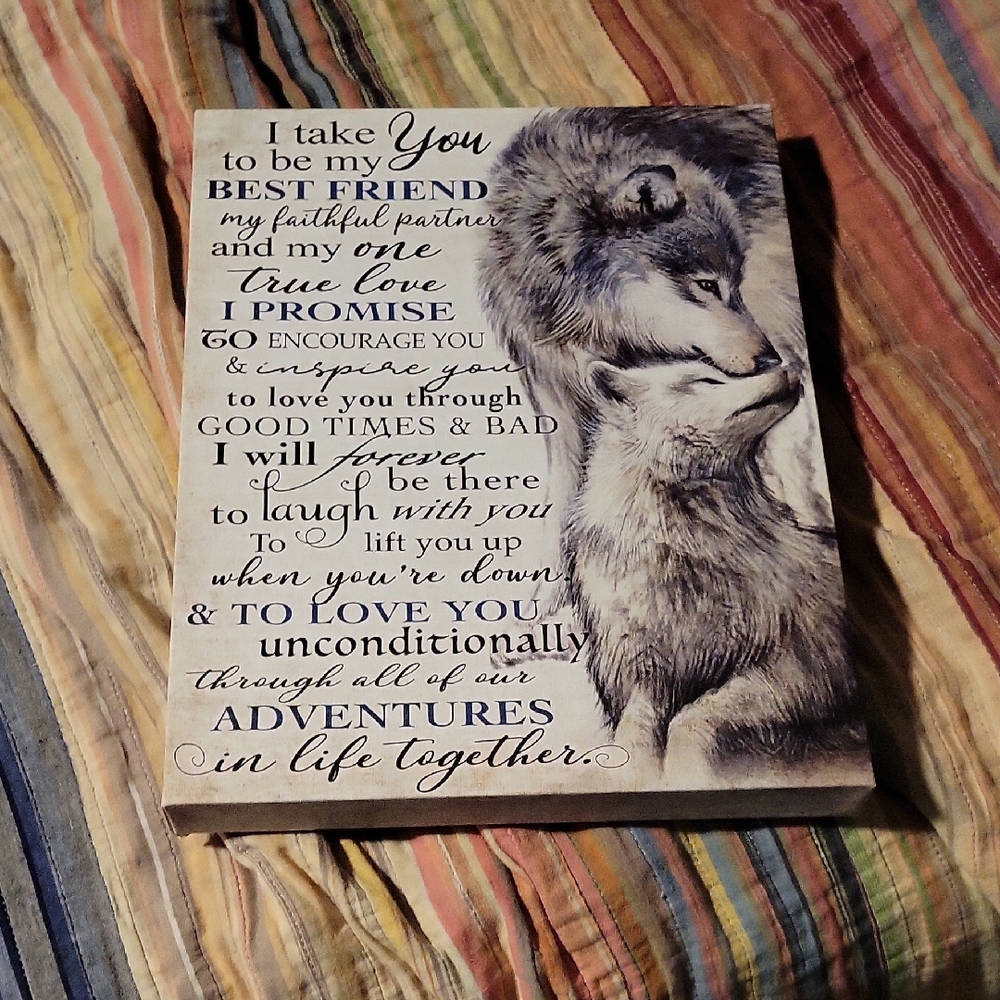 I take You
to be my
BEST FRIEND
my faithful partner
and my one
true love
I PROMISE
TO ENCOURAGE YOU
& inspire you
to love you through
GOOD TIMES & BAD
I will forever
be there
to laugh with you
To lift you up
when you're down.
& TO LOVE YOU
unconditionally
through all of our
ADVENTURES
in life together.